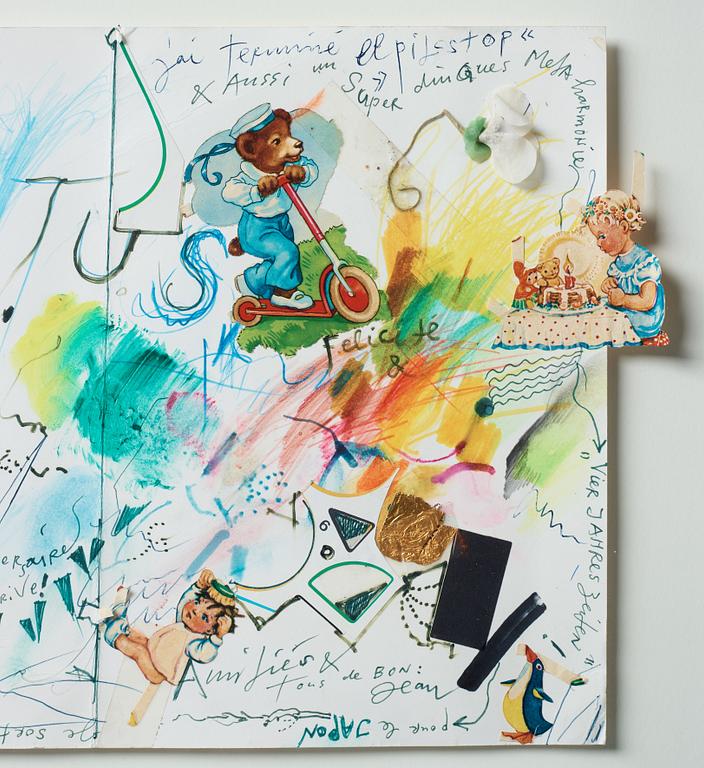 j'ai terminé el pitstop"
& Aussi un Super dingues Meta harmonie
Felicité
&
"Vier JAHRESzeiten"
rive!
Amitiés &
Tous de BON:
Jean
pour le JAPON
je sort